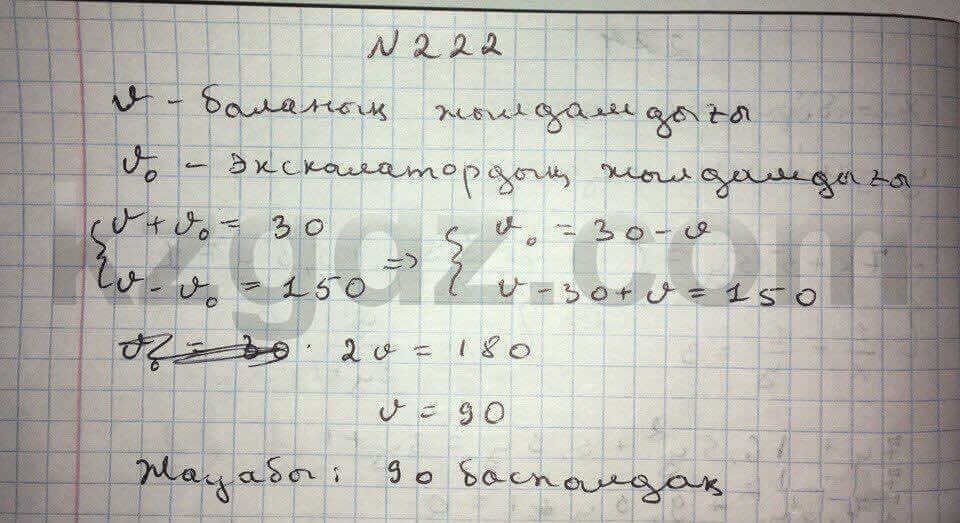 N 222
v - баланың жылдамдығы
v₀ - экскалатордың жылдамдығы
{ v + v₀ = 30 => { v₀ = 30 - v
v - v₀ = 150 v - 30 + v = 150
2v = 180
v = 90
Жауабы: 90 баспалдақ
kzgaz.com